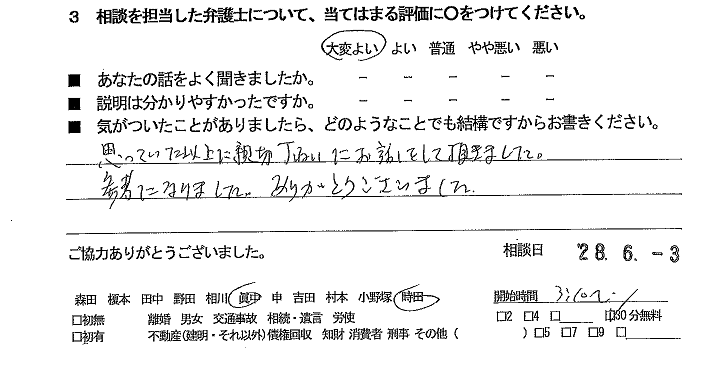 3 相談を担当した弁護士について、当てはまる評価に〇をつけてください。
大変よい よい 普通 やや悪い 悪い
■ あなたの話をよく聞きましたか。 － － － － －
■ 説明は分かりやすかったですか。 － － － － －
■ 気がついたことがありましたら、どのようなことでも結構ですからお書きください。
思っていた以上に親切丁ねいにお話しをして頂きました。
参考になりました。ありがとうございました。
ご協力ありがとうございました。 相談日 '28.6.-3
森田 榎本 田中 野田 相川 眞中 申 吉田 村本 小野塚 時田 開始時間 3:10
□初無 離婚 男女 交通事故 相続・遺言 労使 □2 □4 □ □30分無料
□初有 不動産(建明・それ以外) 債権回収 知財 消費者 刑事 その他 ( ) □5 □7 □9 □